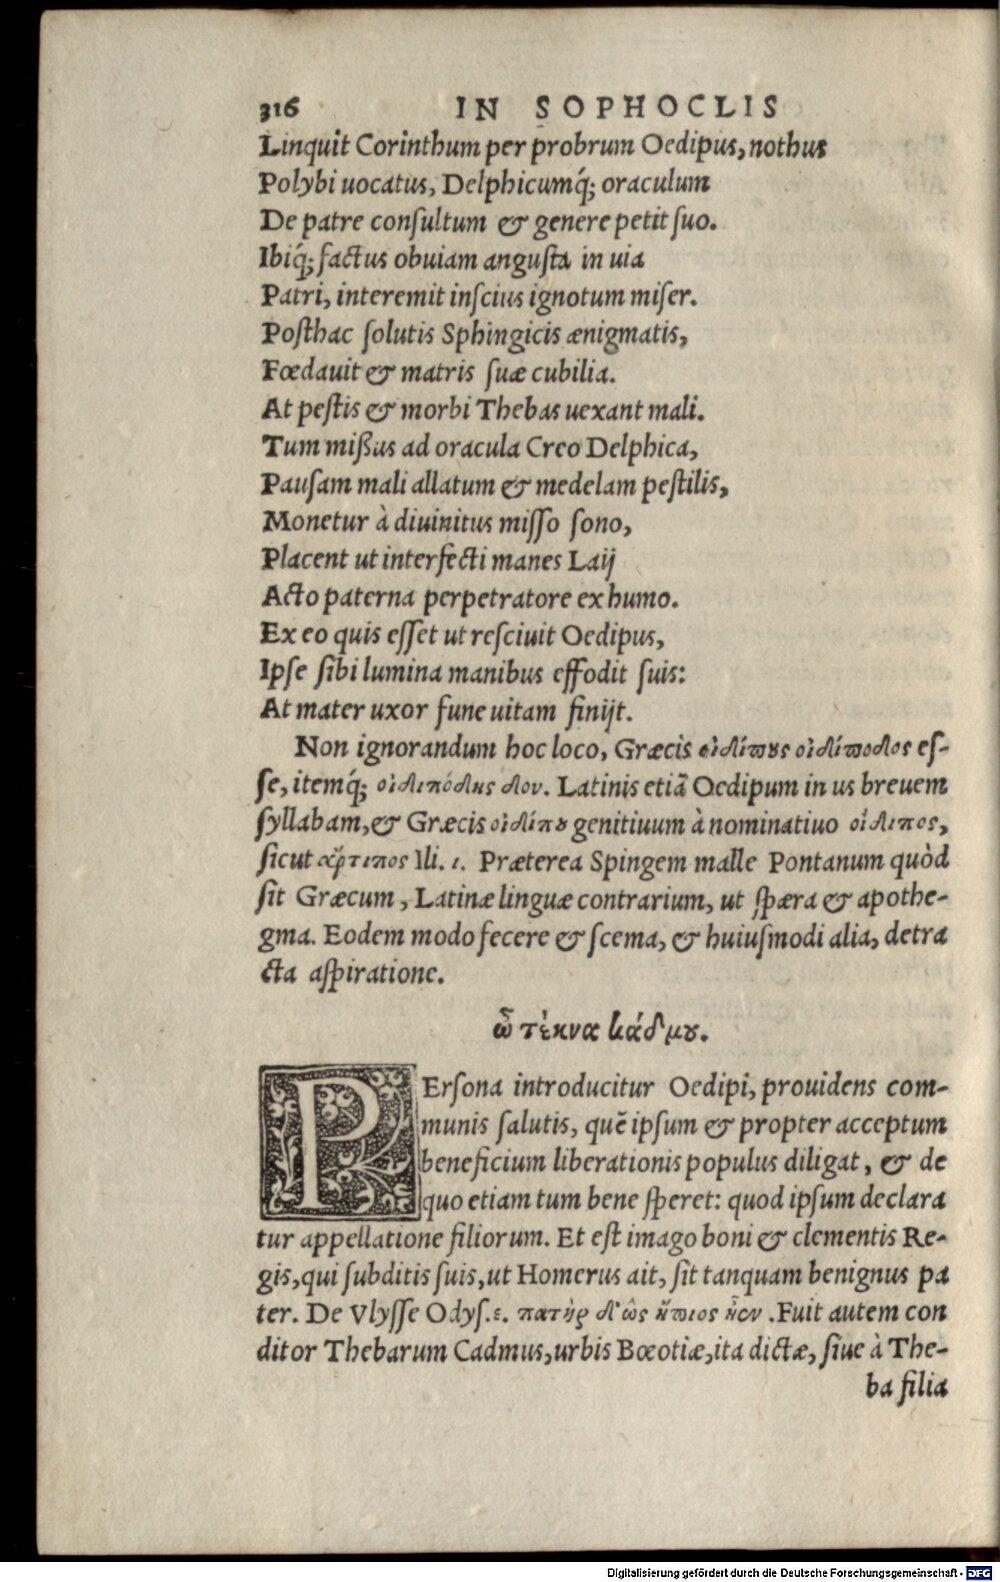 316 IN SOPHOCLIS
Linquit Corinthum per probrum Oedipus, nothus
Polybi uocatus, Delphicumq́; oraculum
De patre conſultum & genere petit ſuo.
Ibiq́; factus obuiam anguſta in uia
Patri, interemit inſcius ignotum miſer.
Poſthac ſolutis Sphingicis ænigmatis,
Fœdauit & matris ſuæ cubilia.
At peſtis & morbi Thebas uexant mali.
Tum mißus ad oracula Creo Delphica,
Pauſam mali allatum & medelam peſtilis,
Monetur à diuinitus miſſo ſono,
Placent ut interfecti manes Laij
Acto paterna perpetratore ex humo.
Ex eo quis eſſet ut reſciuit Oedipus,
Ipſe ſibi lumina manibus effodit ſuis:
At mater uxor fune uitam finijt.
Non ignorandum hoc loco, Græcis οἰδίπους οἰδίποδος eſ-
ſe, itemq́; οἰδιπόδης δου. Latinis etiã Oedipum in us breuem
ſyllabam, & Græcis οἰδίπου genitiuum à nominatiuo οἴδιπος,
ſicut ἄρτιπος Ili. ι. Præterea Spingem malle Pontanum quòd
ſit Græcum, Latinæ linguæ contrarium, ut ſpæra & apothe-
gma. Eodem modo fecere & ſcema, & huiuſmodi alia, detra
cta aſpiratione.
ὦ τέκνα κάδμου.
PErſona introducitur Oedipi, prouidens com-
munis ſalutis, quẽ ipſum & propter acceptum
beneficium liberationis populus diligat, & de
quo etiam tum bene ſperet: quod ipſum declara
tur appellatione filiorum. Et eſt imago boni & clementis Re-
gis, qui ſubditis ſuis, ut Homerus ait, ſit tanquam benignus pa
ter. De Vlyſſe Odyſ. ε. πατὴρ δ' ὣς ἤπιος ἦεν. Fuit autem con
ditor Thebarum Cadmus, urbis Bœotiæ, ita dictæ, ſiue à The-
ba filia
Digitalisierung gefördert durch die Deutsche Forschungsgemeinschaft - DFG